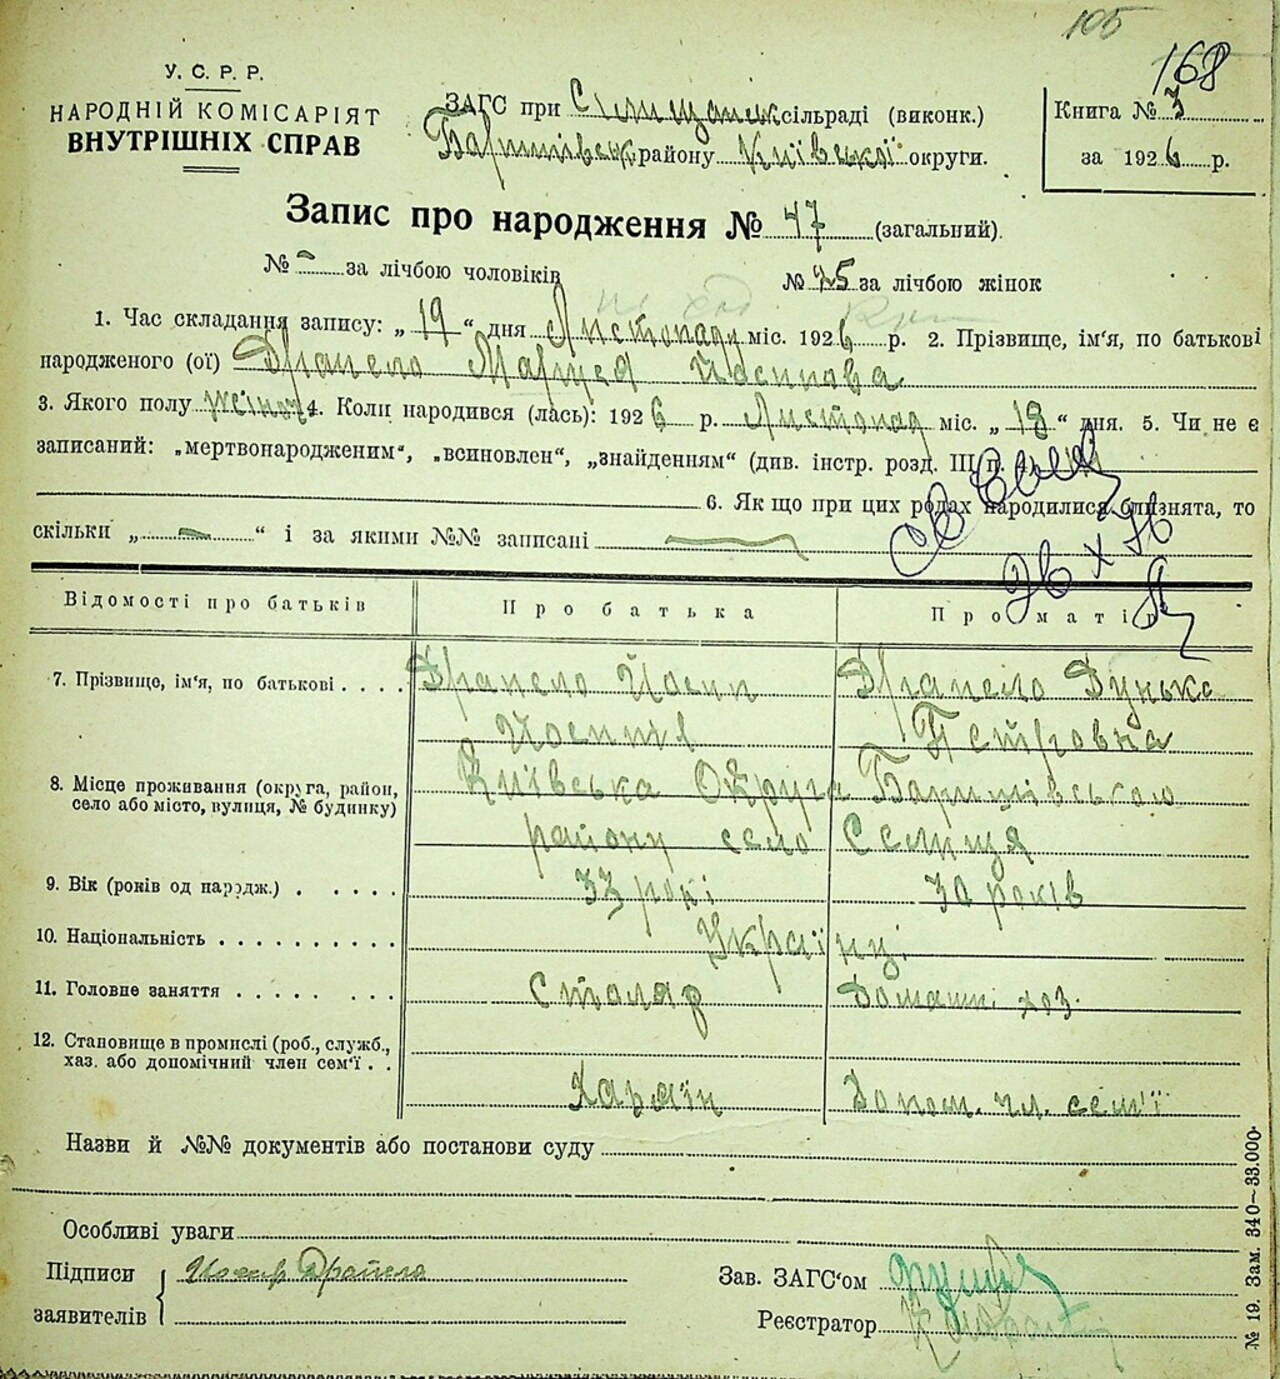 105
168
У. С. Р. Р.
НАРОДНІЙ КОМІСАРІЯТ
ВНУТРІШНІХ СПРАВ
ЗАГС при Сілищанськ сільраді (виконк.)
Баришівськ району Київської округи.
Книга № 3
за 1926 р.
Запис про народження № 47 (загальний).
№ – за лічбою чоловіків
№ 25 за лічбою жінок
1. Час складання запису: „ 19 “ дня Листопаду міс. 1926 р. 2. Прізвище, ім‘я, по батькові
народженого (ої) Драпело Маруся Йосипова
3. Якого полу жіноч 4. Коли народився (лась): 1926 р. Листопад міс. „ 18 “ дня. 5. Чи не є
записаний: „мертвонародженим“, „всиновлен“, „знайденням“ (див. інстр. розд. III п.
6. Як що при цих родах народилися близнята, то
скільки „ – “ і за якими №№ записані
Відомості про батьків
Про батька
Про матір
7. Прізвище, ім‘я, по батькові . . . .
Драпело Йосип
Йосипів
Драпело Дунька
Петровна
8. Місце проживання (округа, район,
село або місто, вулиця, № будинку)
Київська Округа Баришівського
району село Селища
9. Вік (років од народж.) . . . . .
33 рокі
30 років
10. Національність . . . . . . . . . .
Українці
11. Головне заняття . . . . . . . .
Столяр
Домашн. хоз.
12. Становище в промислі (роб., служб.,
хаз. або допомічний член сем‘ї . .
Хазяїн
Допом. чл. сем'ї
Назви й №№ документів або постанови суду
Особливі уваги
Підписи
заявителів
Йосип Драпело
Зав. ЗАГС‘ом
Реєстратор
№ 19. Зам. 340–33.000.